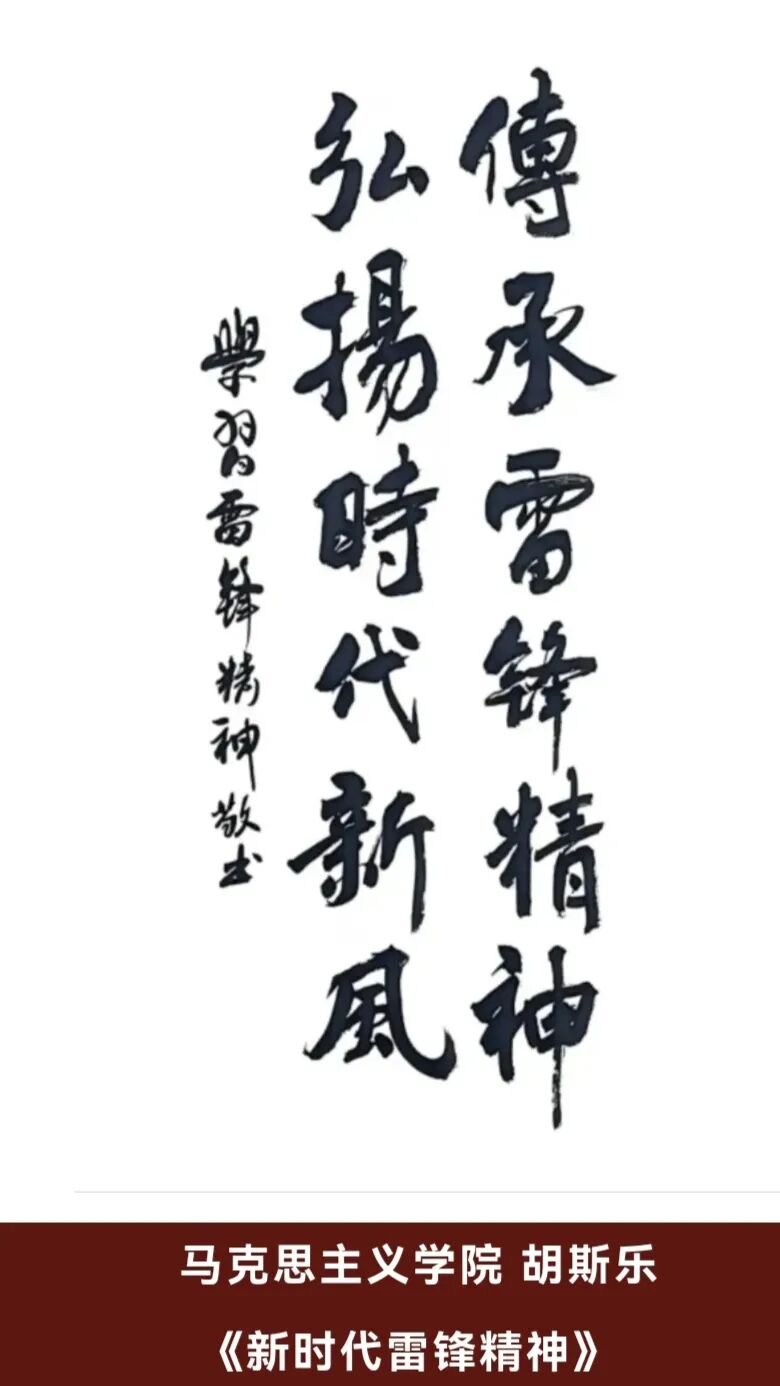 傳承雷锋精神
弘揚時代新風
學習雷锋精神敬书
马克思主义学院 胡斯乐
《新时代雷锋精神》